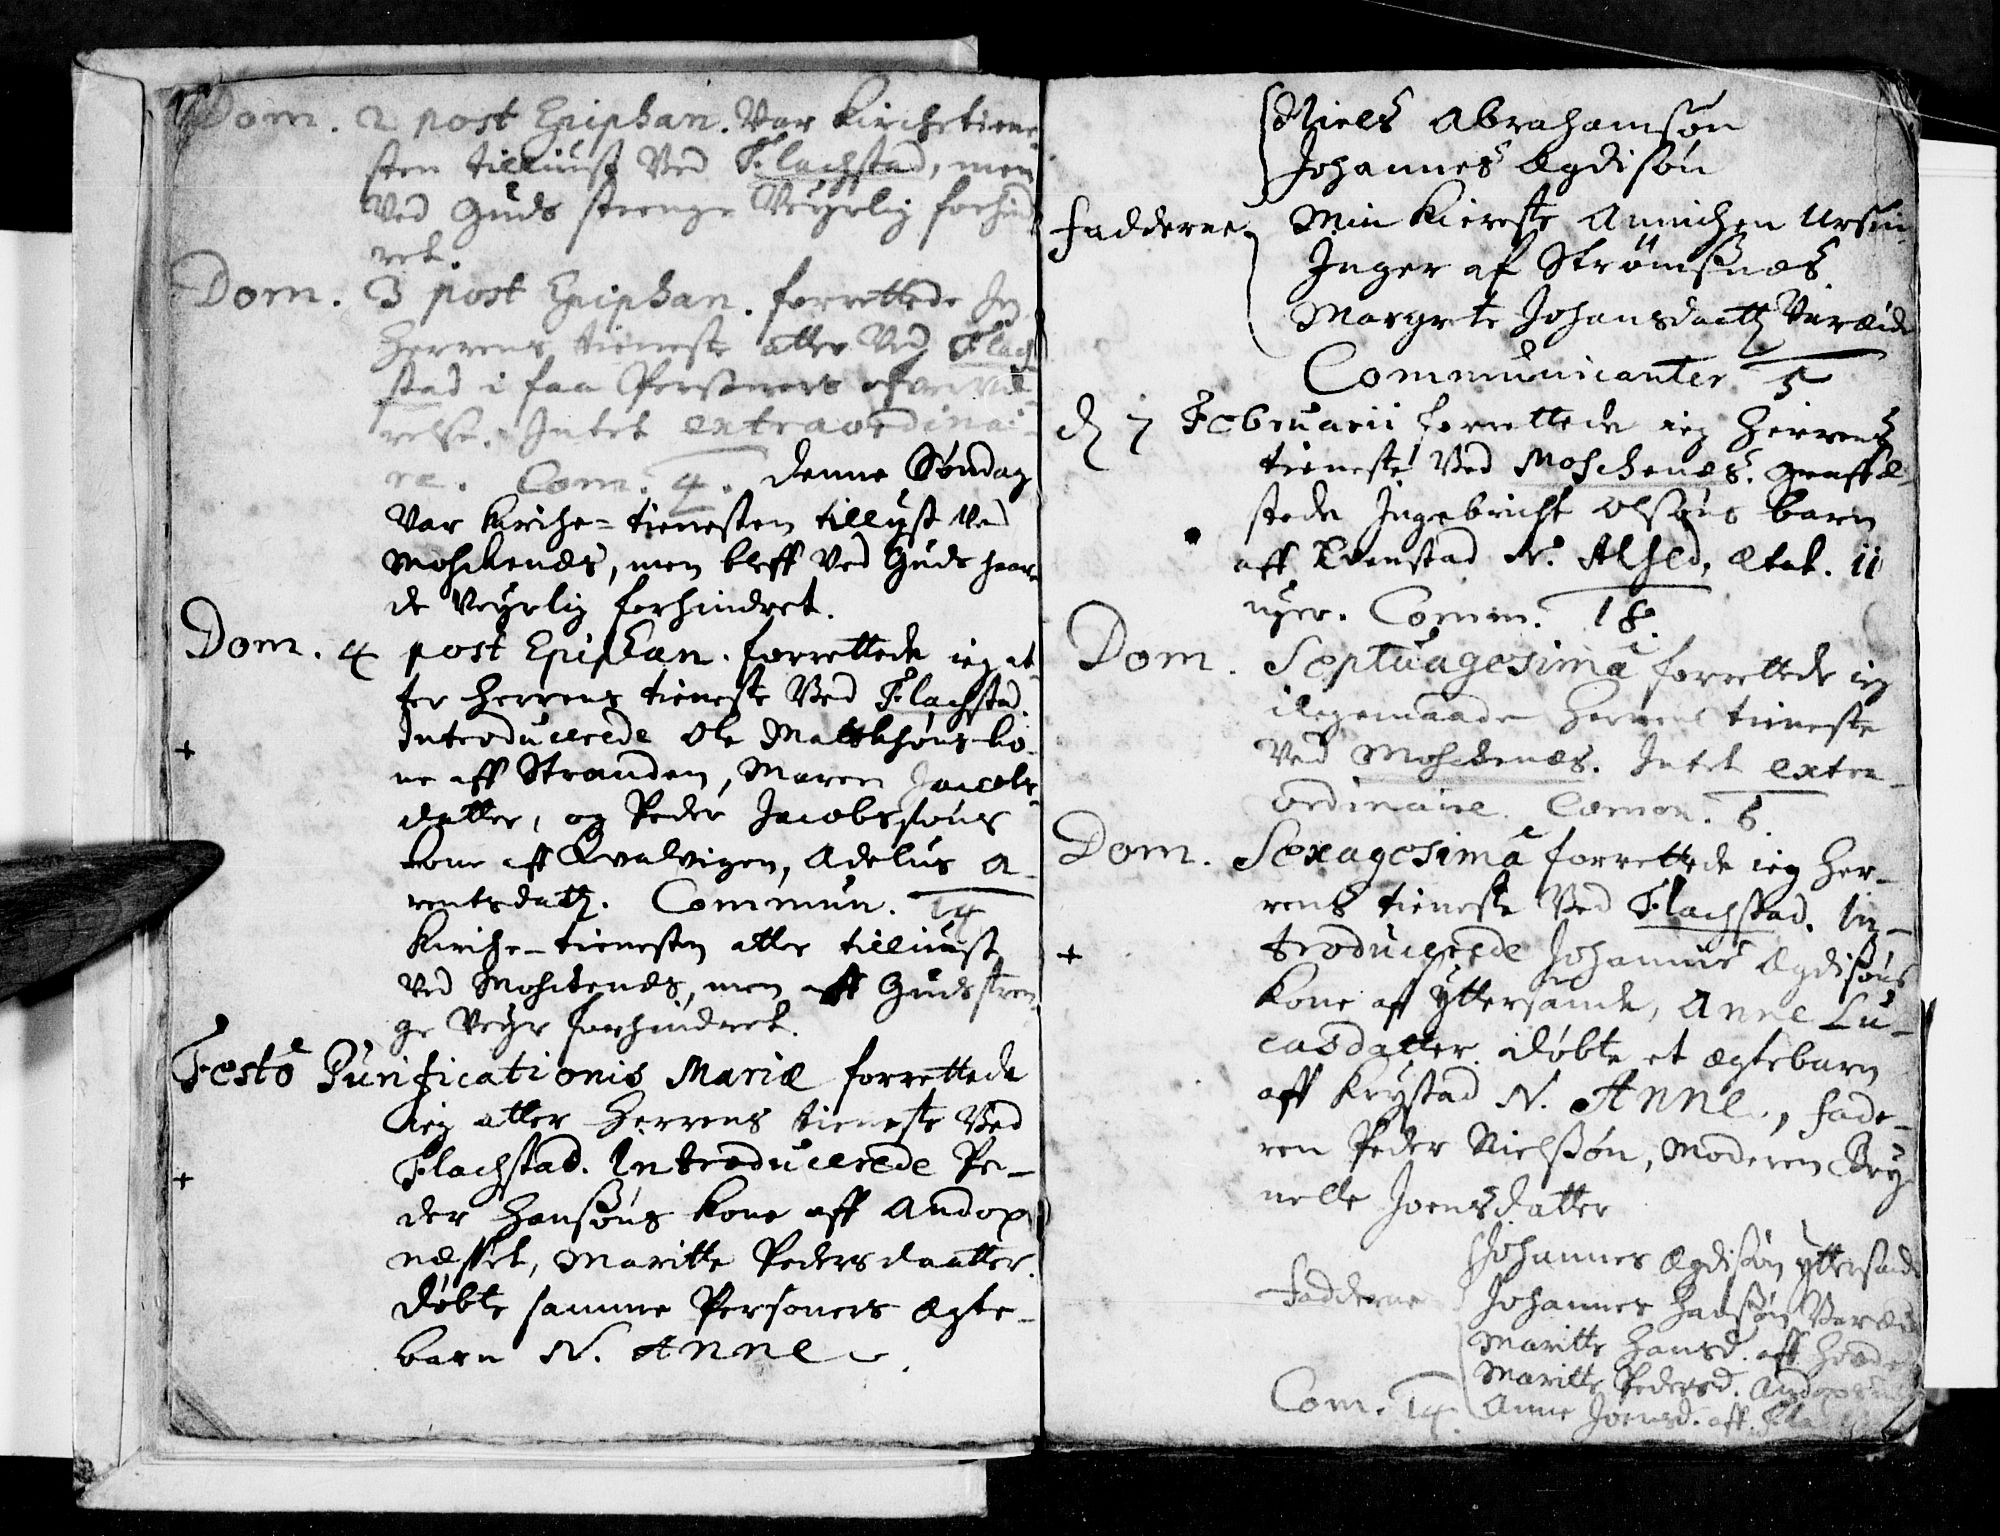 Dom. 2 post Epiphan. Var Kirchetiene
sten tilliust Ved Flachstad, men
Ved Guds strenge Veyrlig forhind
ret.
Dom. 3 post Epiphan. forrettede Jeg
Herrens tieneste atter Ved Flach
stad i faa Personers
relse. Intet extraordinai-
re. Com. 4. denne Søndag
Var Kirche-tienesten tillyst Ved
Moschenæs, men bleff Ved Guds haar
de Veyrlig forhindret.
Dom. 4 post Epiphan. forrettede ieg at
ter Herrens tieneste Ved Flachstad.
Introducerede Ole Matthisøns ko-
ne aff Stranden, Maren Jacobs-
datter, og Peder Jacobssøns
kone aff Kvalvigen, Adelus A-
rentsdatt. Commun. 14
Kirche-tienesten atter tilliust
Ved Moschenæs, men aff Guds stren
ge Veyr forhindret.
Festo Purificationis Mariæ forrettede
ieg atter Herrens tieneste Ved
Flachstad. Introducerede Pe-
der Hansøns kone aff Andop
næsset, Maritte Pedersdaatter.
døbte samme Personers Ægte-
barn N. Anne.
Niels Abrahamsøn
Johannes Ægdisøn
Fadderne Min Kiereste Annichen Ursin
Inger af Strømsnæs
Margrete Johansdaatt Vareide
Communicanter 5
d 7 Februarii forrettede ieg Herrens
tieneste Ved Moschenæs. Graffæ-
stede Ingebricht Olsøns barn
aff Evenstad N. Alhed, Ætat. 11
uger. Comm. 18.
Dom. Septuagesima forrettede ieg
ligemaade Herrens tieneste
Ved Moschenæs. Intet extra-
ordinaire. Common. 6.
Dom. Sexagesima forrettede ieg Her-
rens tieneste Ved Flachstad. In-
troducerede Johannis Ægdisøns
Kone af Yttersande, Anne Lu-
casdatter. døbte et Ægtebarn
aff Krystad N. Anne, fade-
ren Peder Nielssøn, Moderen Bry
nelle Joensdatter
Johannes Ægdisøn Yttersand
Fadderne Johannes Hansøn Vareide
Maritte Hansd. aff
Maritte Pedersd.
Com. 14. Anne Joensd. aff